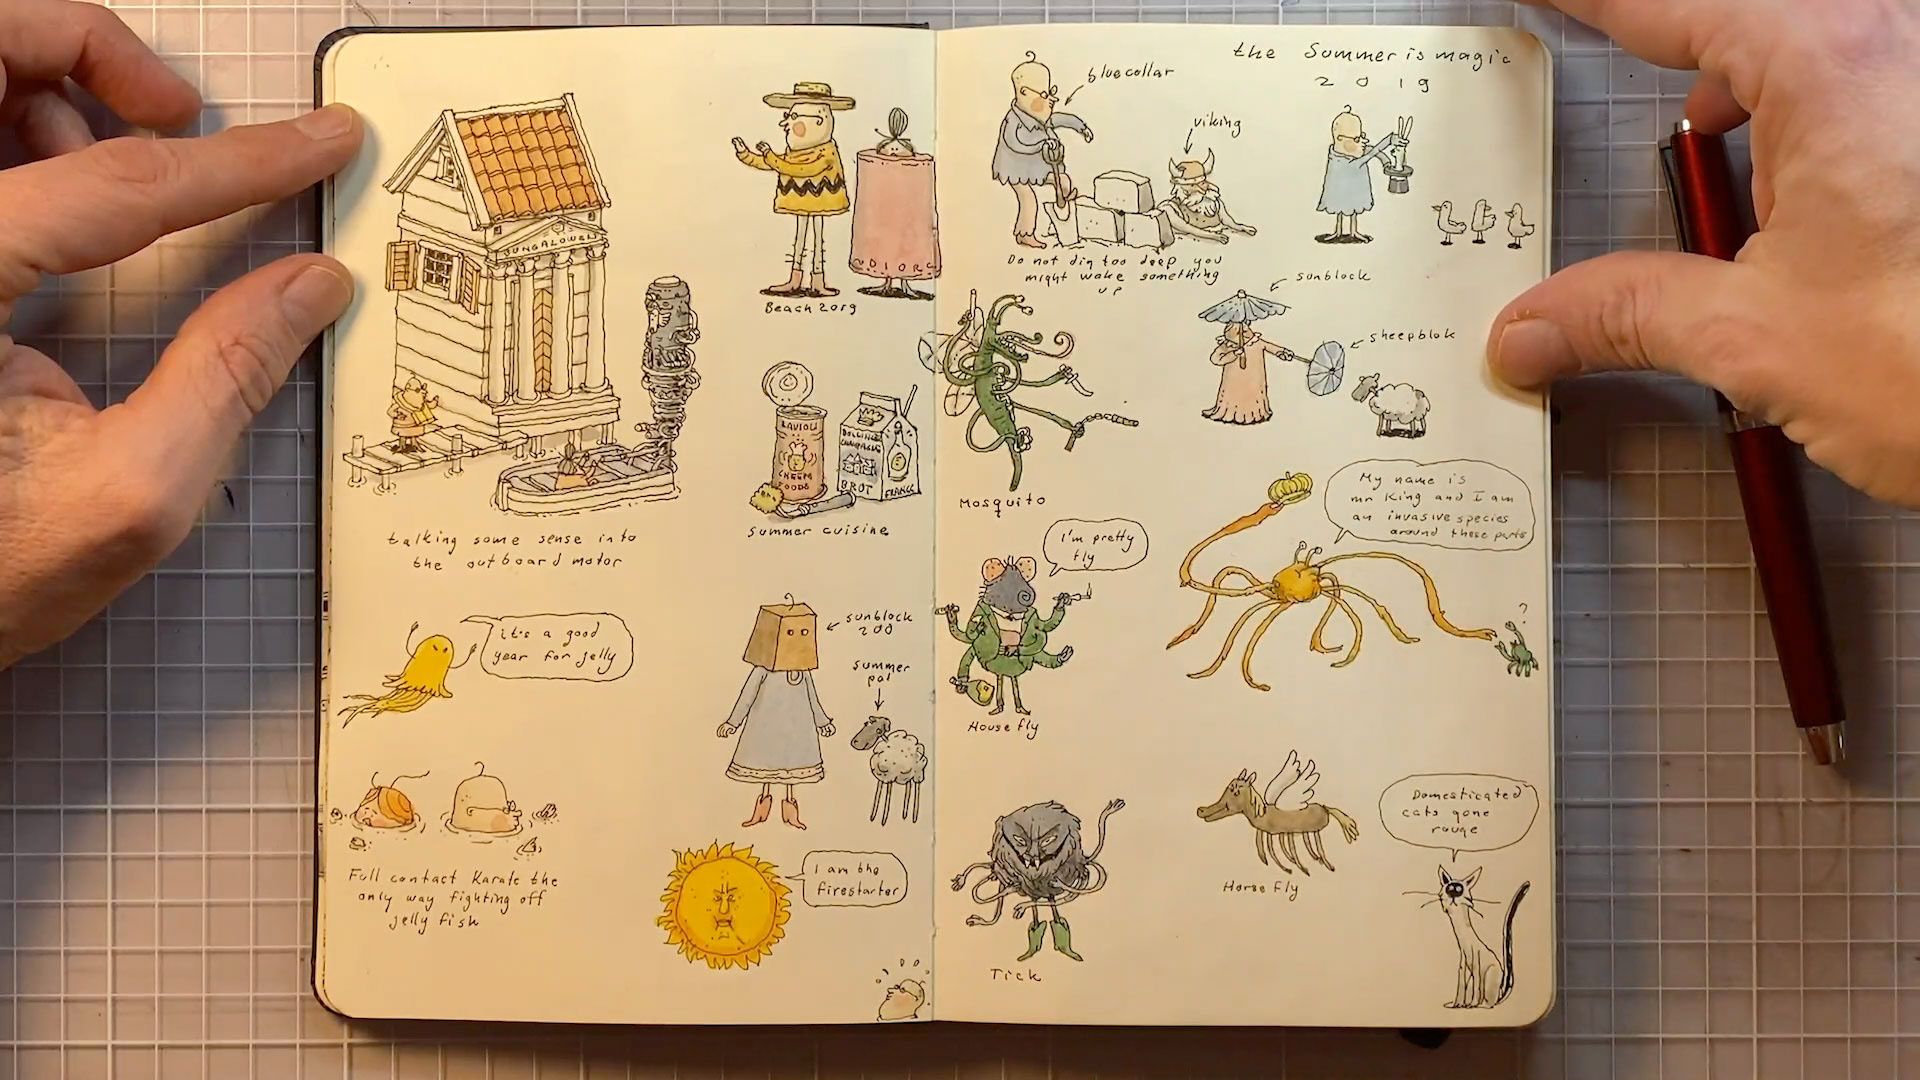 the Summer is magic
2019
BUNGALOWEL
talking some sense into
the outboard motor
it's a good
year for jelly
Full contact Karate the
only way fighting off
jelly fish
Beach 2019
DIOR
RAVIOLI
CHEEM
FOODS
BROT
FRANCE
Summer cuisine
sunblock
200
summer
pal
I am the
firestarter
blue collar
viking
Do not dig too deep you
might wake something
up
Mosquito
sunblock
sheepblok
I'm pretty
fly
House fly
My name is
mr King and I am
an invasive species
around these parts
Tick
Horse fly
Domesticated
cats gone
rouge